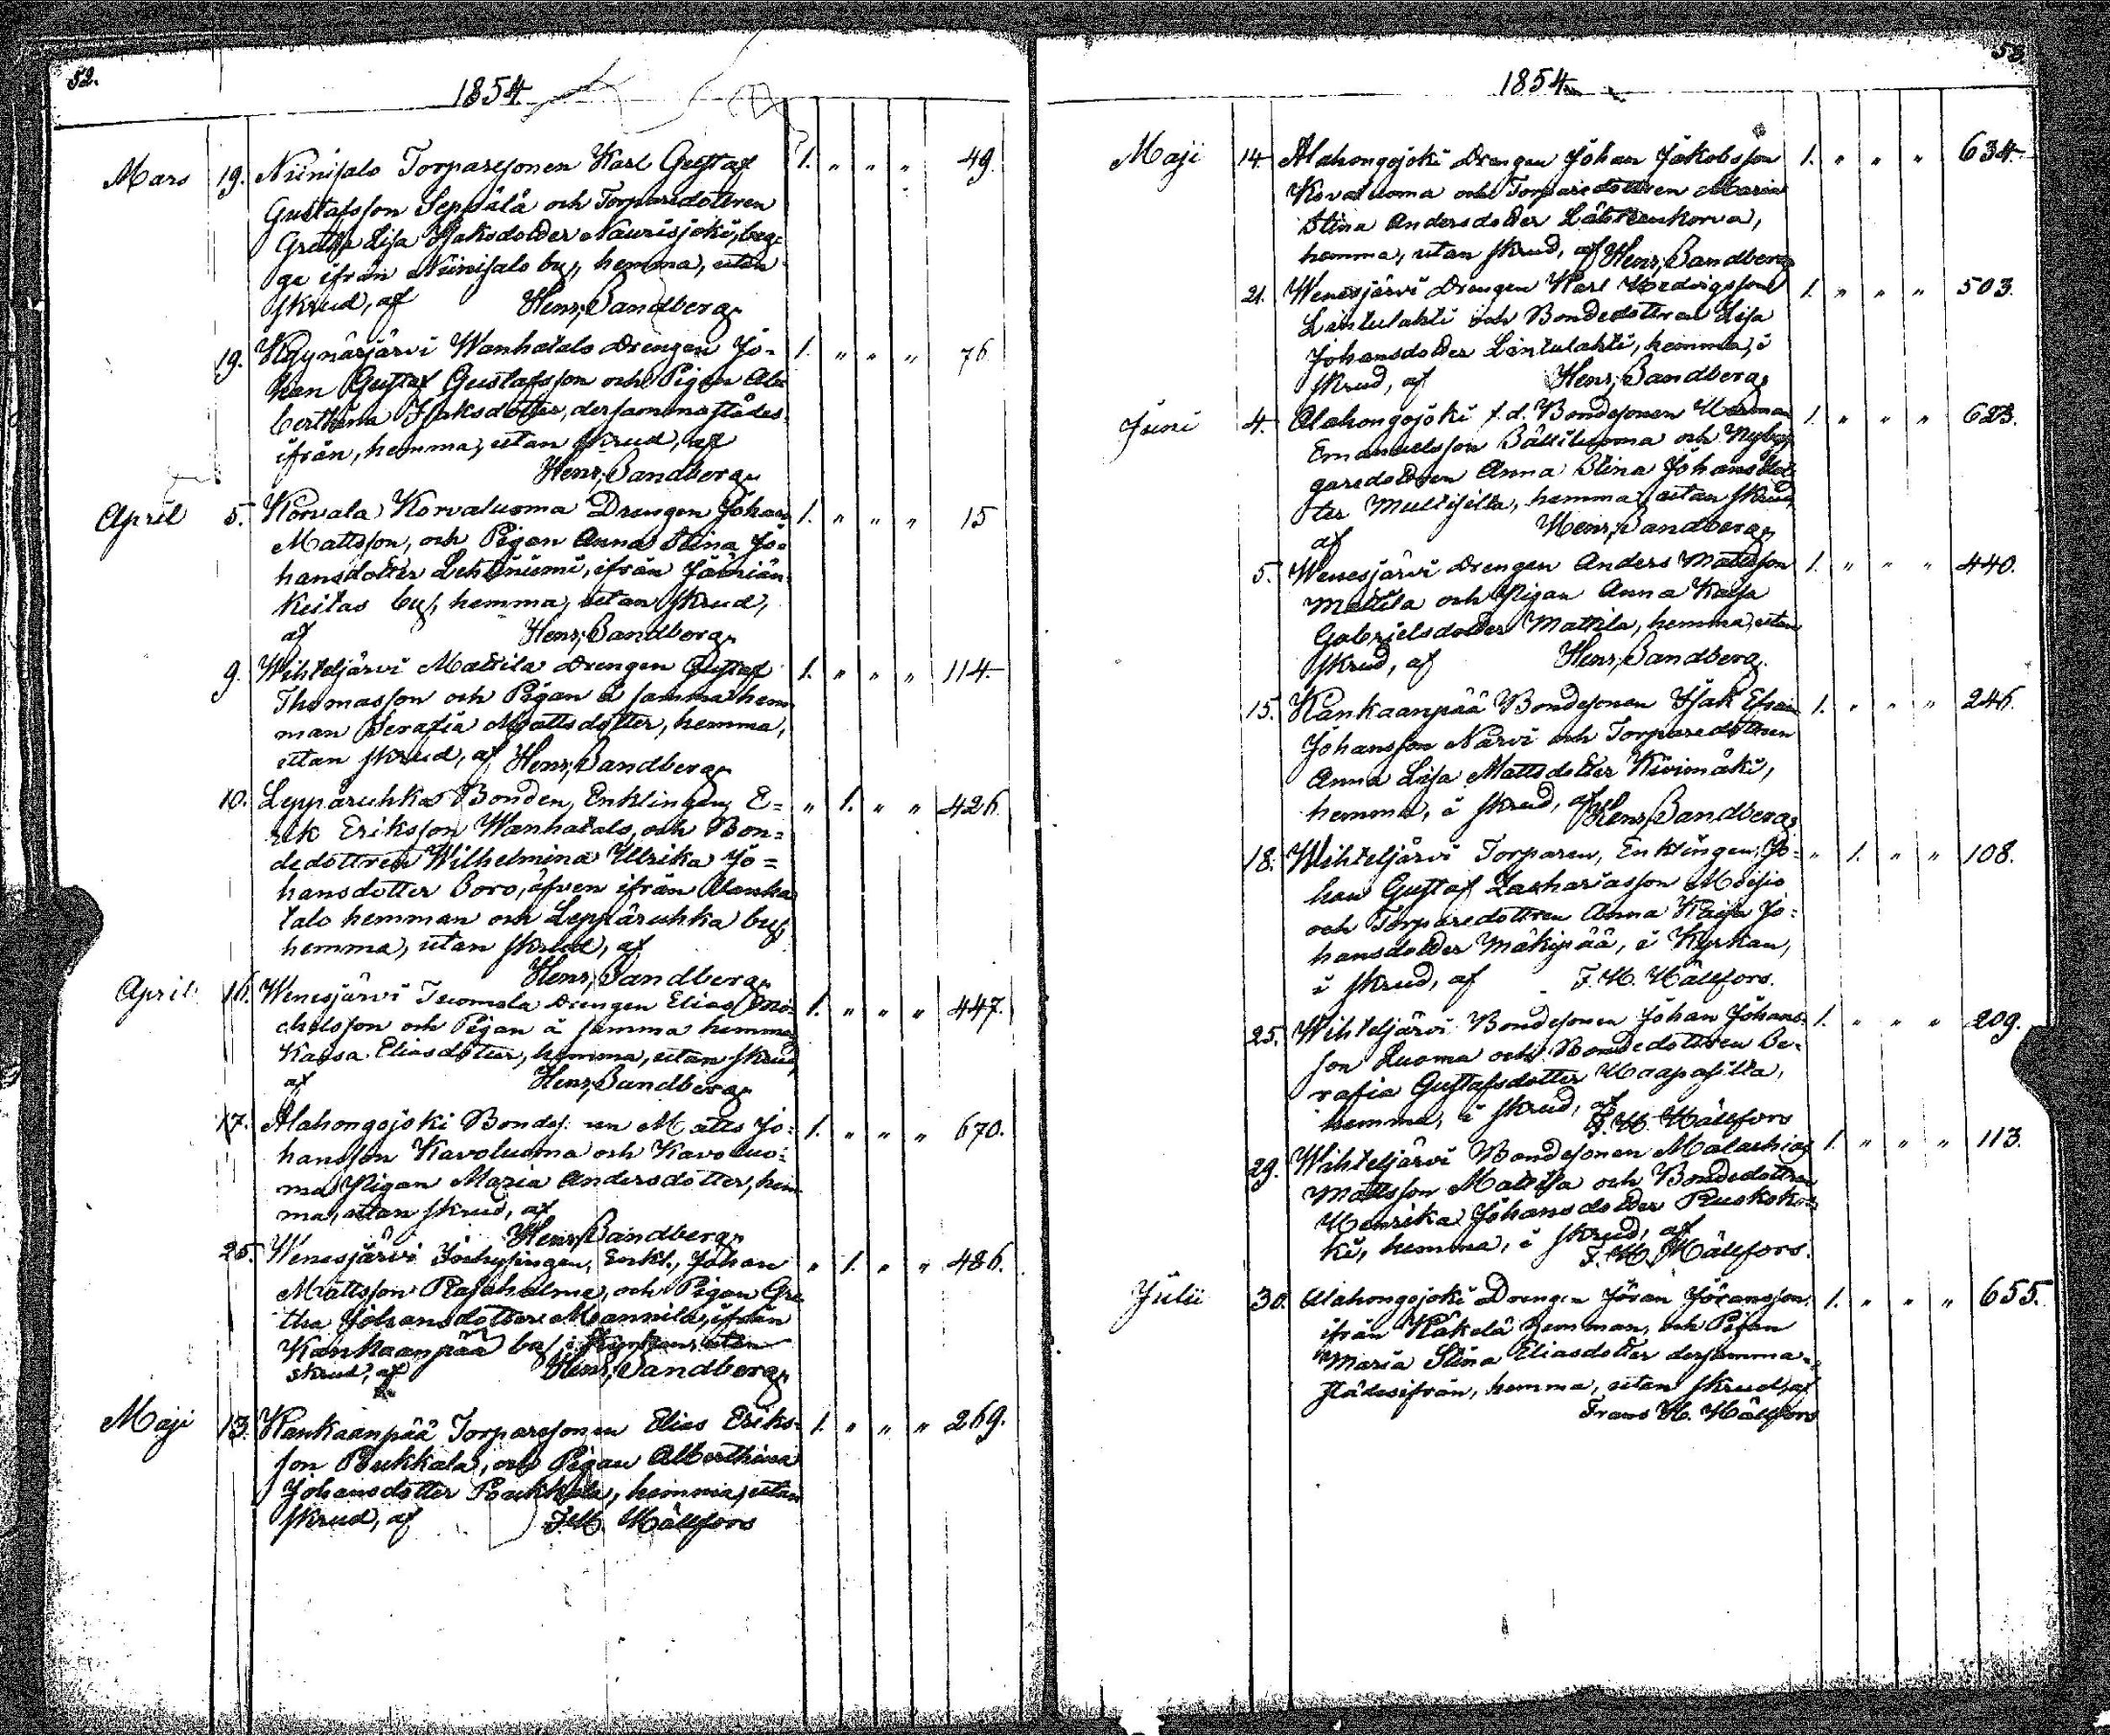 52.
1854
Mars 19. Niinisalo Torparesonen Karl Gustaf 1. " " " 49.
Gustafsson Seppälä och Torparedottren
Gretha Lisa Isaksdotter Naurisjoki, beg-
ge ifrån Niinisalo by, hemma, utan
skrud, af Henr; Sandberg
19. Kynäsjärvi Wanhatalo Drengen Jo- 1. " " " 76
han Gustaf Gustafsson och Pigan Al-
berthina Isaksdotter, dersammastädes-
ifrån, hemma, utan skrud, af
Henr; Sandberg
April 5. Korvala Korvaluoma Drengen Johan 1. " " " 15
Mattsson, och Pigan Anna Stina Jo-
hansdotter Lehtiniemi, ifrån Jämiän-
keitas by, hemma, utan skrud,
af Henr; Sandberg
9. Wihteljärvi Mattila Drengen Gustaf 1. " " " 114.
Thomasson och Pigan å samma hem
man Serafia Mattsdotter, hemma,
utan skrud, af Henr; Sandberg
10. Leppäruhkas Bonden, Enklingen, E= " 1. " " 426.
rik Eriksson Wanhatalo, och Bon=
dedottren Wilhelmina Ulrika Jo=
hansdotter Soro, äfven ifrån Wanha
talo hemman och Leppäruhka by,
hemma, utan skrud, af
Henr; Sandberg
April 16. Wenesjärvi Tuomola Drengen Elias Mi- 1. " " " 447.
chelsson och Pigan å samma hemman
Kaisa Eliasdotter, hemma, utan skrud,
af Henr; Sandberg
17. Alahongojoki Bondes. en Matts Jo- 1. " " " 670.
hansson Kavoluoma och Kavoluo-
ma Pigan Maria Andersdotter, hem
ma, utan skrud, af
Henr; Sandberg
25. Wenesjärvi Inhysingen, Enkl., Johan " 1. " " 486.
Mattsson Rajahalme, och Pigan Gre
tha Johansdotter Mannila, ifrån
Kankaanpää by, i Kyrkan, utan
skrud, af Henr; Sandberg
Maji 13. Kankaanpää Torparesonen Elias Eriks- 1. " " " 269.
son Pukkala, och Pigan Alberthina
Johansdotter Pukkala, hemma, utan
skrud, af F. H. Hällfors
53.
1854
Maji 14. Alahongojoki Drengen Johan Jakobsson 1. " " " 634.
Korvaluoma och Torparedottren Maria
Stina Andersdotter Lähteenkorva,
hemma, utan skrud, af Henr; Sandberg
21. Wenesjärvi Drengen Karl Hedvigsson 1. " " " 503.
Lintulahti och Bondedottren Lisa
Johansdotter Lintulahti, hemma, i
skrud, af Henr; Sandberg
Juni 4. Alahongojoki f. d. Bondesonen Herman 1. " " " 623.
Emanuelsson Sälliluoma och Nybyg-
garedottren Anna Stina Johansdot
ter Multisilta, hemma, utan skrud,
af Henr; Sandberg
5. Wenesjärvi Drengen Anders Mattsson 1. " " " 440.
Mattila och Pigan Anna Kaisa
Gabrielsdotter Mattila, hemma, utan
skrud, af Henr; Sandberg.
15. Kankaanpää Bondesonen Isak Efraim 1. " " " 246.
Johansson Narvi och Torparedottren
Anna Lisa Mattsdotter Kivimäki,
hemma, i skrud, af Henr; Sandberg
18. Wihteljärvi Torparen, Enklingen, Jo- " 1. " " 108.
han Gustaf Zachariasson Moisio
och Torparedottren Anna Kaisa Jo-
hansdotter Mäkipää, i Kyrkan,
i skrud, af F. H. Hällfors.
25. Wihteljärvi Bondesonen Johan Johans- 1. " " " 209.
son Luoma och Bondedottren Se-
rafia Gustafsdotter Haapasilta,
hemma, i skrud, af
F. H. Hällfors
29. Wihteljärvi Bondesonen Malachias 1. " " " 113.
Mattsson Mattila och Bondedottren
Henrika Johansdotter Ruokojo-
ki, hemma, i skrud, af
F. H. Hällfors.
Julii 30. Alahongojoki Drengen Jöran Jöransson 1. " " " 655.
ifrån Käkelä hemman, och Pigan
Maria Stina Eliasdotter dersamma-
städesifrån, hemma, utan skrud, af
Frans H. Hällfors